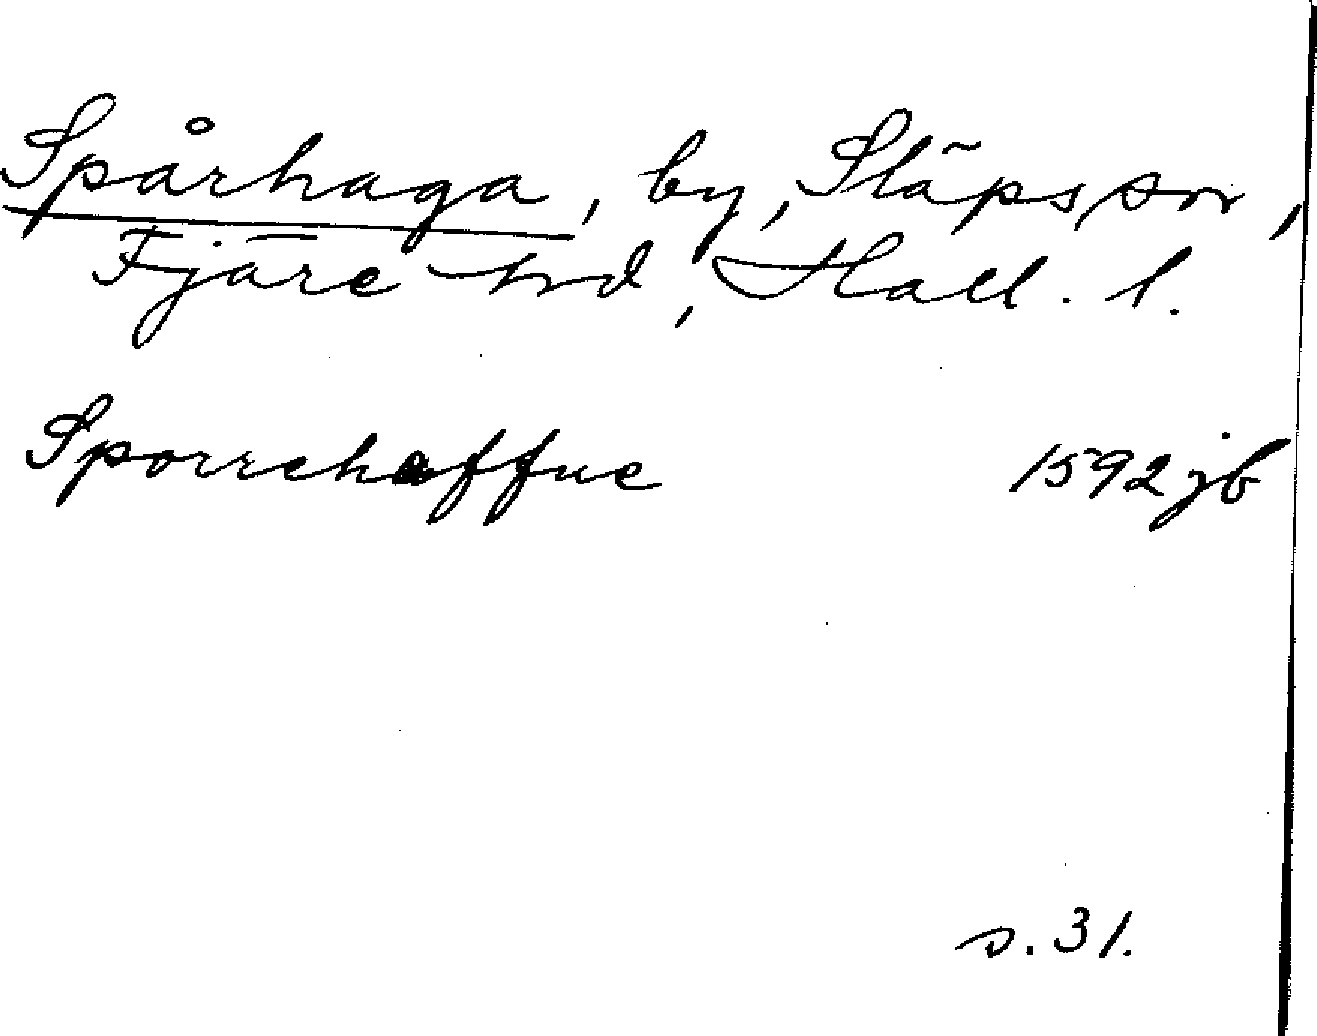 Spårhaga, by, Släps sn,
Fjäre hd, Hall. l.
Sporrehaffue 1592 jb
s. 31.